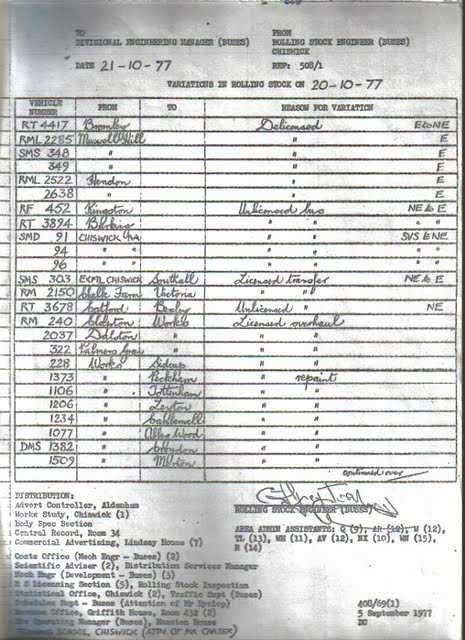 TO FROM
DIVISIONAL ENGINEERING MANAGER (BUSES) ROLLING STOCK ENGINEER (BUSES)
CHISWICK
DATE 21-10-77 REF: 508/1
VARIATIONS IN ROLLING STOCK ON 20-10-77
VEHICLE NUMBER FROM TO REASON FOR VARIATION
RT 4417 Bromley Delicensed E to NE
RML 2285 Muswell Hill " E
SMS 348 " " E
349 " " E
RML 2522 Hendon " E
2638 " " E
RF 452 Kingston Unlicensed bus NE to E
RT 3894 Barking " " " "
SMD 91 CHISWICK " " SVS to NE
94 " " " " " "
96 " " " " " "
SMS 303 EXPTL CHISWICK Southall Licensed transfer NE to E
RM 2150 Chalk Farm Victoria " "
RT 3678 Catford Bexley Unlicensed " NE
RM 240 Works Licensed overhaul
2037 Dalston " " "
322 Palmers Green " " "
228 Works Sidcup " "
1373 " Peckham " repaint
1106 " Tottenham " "
1206 " Leyton " "
1234 " Camberwell " "
1077 " Abbey Wood " "
DMS 1382 " Croydon " "
1509 " Merton " "
continued over
DISTRIBUTION:
Advert Controller, Aldenham ROLLING STOCK ENGINEER (BUSES)
Works Study, Chiswick (1)
Body Spec Section AREA ADMIN ASSISTANTS: Q (9), AR (12), W (12),
Central Record, Room 34 TL (13), WH (11), AV (12), NX (10), WN (15),
Commercial Advertising, Lindsay House (7) R (14)
Costs Office (Mech Engr - Buses) (2)
Scientific Adviser (2), Distribution Services Manager
Mech Engr (Development - Buses) (3)
R S Licensing Section (5), Rolling Stock Inspection
Statistical Office, Chiswick (2), Traffic Supt (Buses)
Schedules Supt - Buses (Attention of Mr 408/69(1)
Revenue Office, Griffith House, Room 432 (2) 5 September 1977
Operating Manager (Buses), Mansion House DC
SCHOOL, CHISWICK (ATTN. OF MR CARTER)